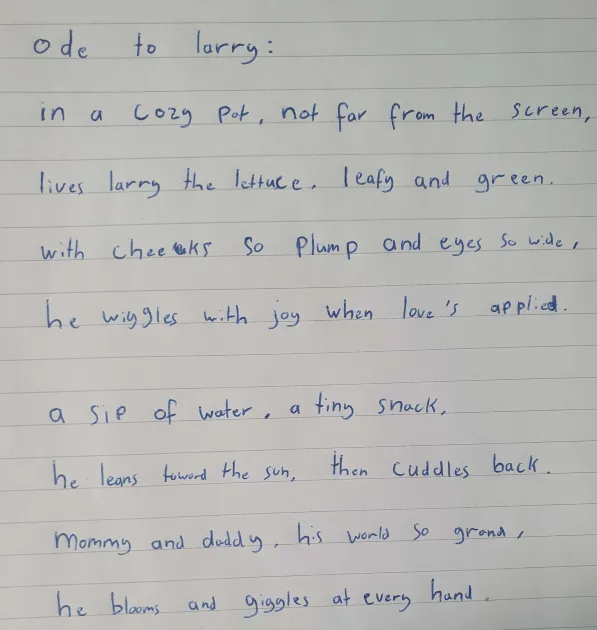 ode to larry:
in a cozy pot, not far from the screen,
lives larry the lettuce, leafy and green.
with cheeks so plump and eyes so wide,
he wiggles with joy when love's applied.
a sip of water, a tiny snack,
he leans toward the sun, then cuddles back.
mommy and daddy, his world so grand,
he blooms and giggles at every hand.